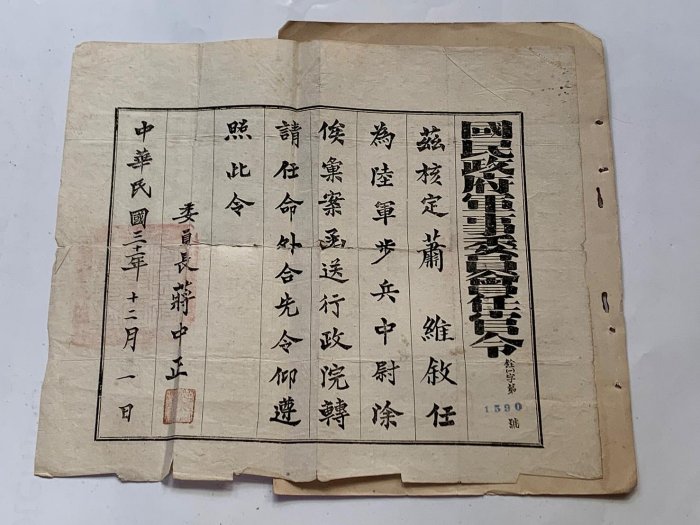 國民政府軍事委員會任官令
銓字第
1590
號
茲核定蕭維敘任
為陸軍步兵中尉除
俟彙案函送行政院轉
請任命外合先令仰遵
照此令
委員長蔣中正
中華民國三十一年十二月一日